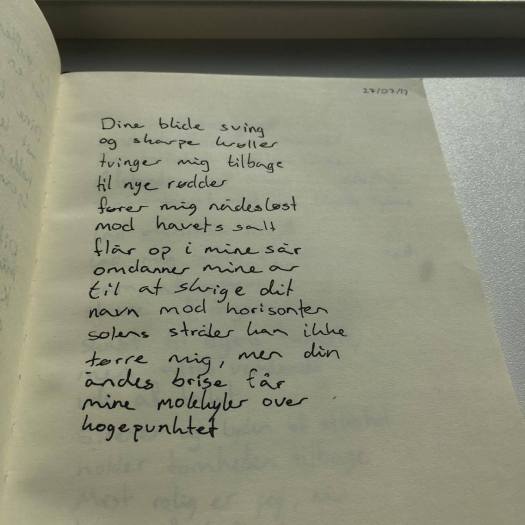 27/07/17
Dine blide sving
og skarpe kroller
tvinger mig tilbage
til nye rødder
fører mig nådesløst
mod havets salt
flår op i mine sår
omdanner mine ar
til at skrige dit
navn mod horisonten
solens stråler kan ikke
tørre mig, men din
åndes brise får
mine molekyler over
kogepunktet
holder tomheden tilbage
Mest rolig er jeg, når